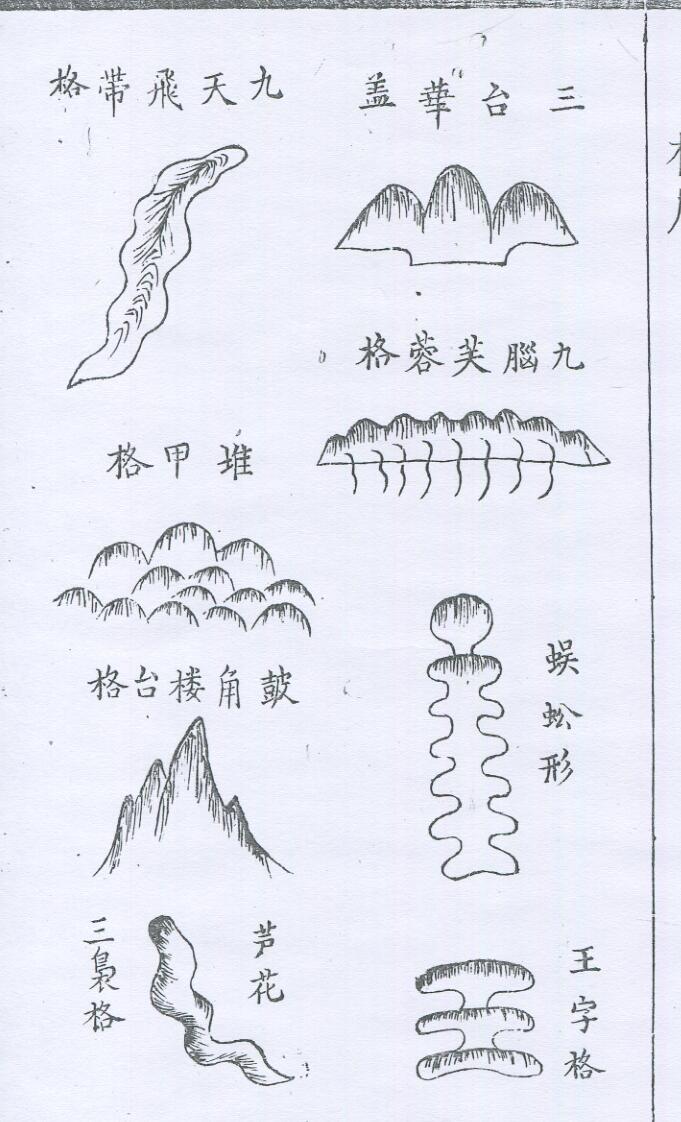 三台華盖
九天飛帶格
九腦芙蓉格
堆甲格
皷角楼台格
蜈蚣形
芦花
三裊格
王字格